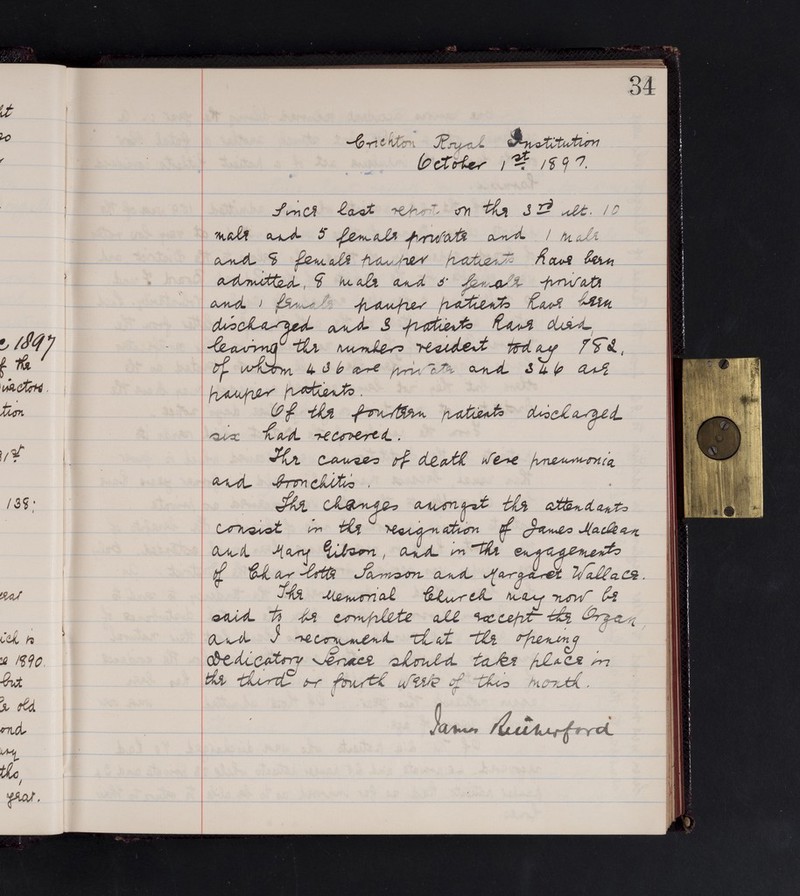 34
Crichton Royal Institution
October 1st 1897.
Since last report on the 3rd ult. 10
male and 5 female private and 1 male
and 8 female pauper patients have been
admitted, 8 male and 5 female private
and 1 female pauper patients have been
discharged and 3 patients have died,
leaving the numbers resident today 782,
of whom 436 are private and 346 are
pauper patients.
Of the fourteen patients discharged
six had recovered.
The causes of death were pneumonia
and Bronchitis.
The changes amongst the attendants
consist in the resignation of James Maclean
and Mary Gibson, and in the engagements
of Charlotte Samson and Margaret Wallace.
The Memorial Church may now be
said to be complete all except the Organ,
and I recommend that the opening
Dedicatory Service should take place in
the third or fourth week of this month.
James Rutherford
1897
f the
irectors.
tion
91st
138;
year
ich is
1890.
but
old
ond
year.